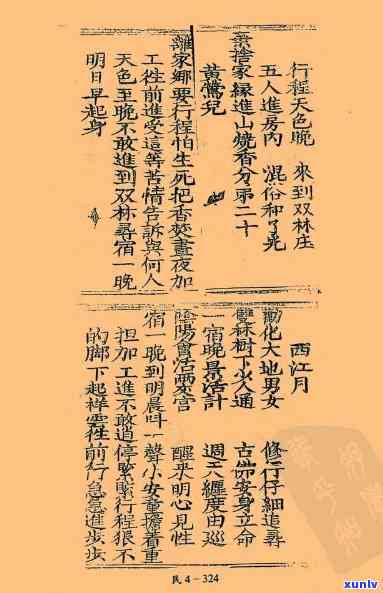 行程天色晚　來到双林庄
五人進房內　混俗和了光
棄捨家縁進山燒香分苐二十
黄鶯兒
離家鄉要行程怕生死把香焚晝夜加
工徃前進受這等苦情告訴與何人
天色至晚不敢進到双林尋宿一晚
明日早起身
西江月
勸化大地男女　修行仔細追尋
雙林樹下人通　古佛安身立命
一宿晚景活計　週纏度由巡
陰陽會活两宮　醒來明心見性
宿一晚到明晨呌一聲小安童擔着重
担加工進不敢逍停緊緊行程狠不
的脚下起祥雲徃前行急急進步步
民 4－324
xunlv